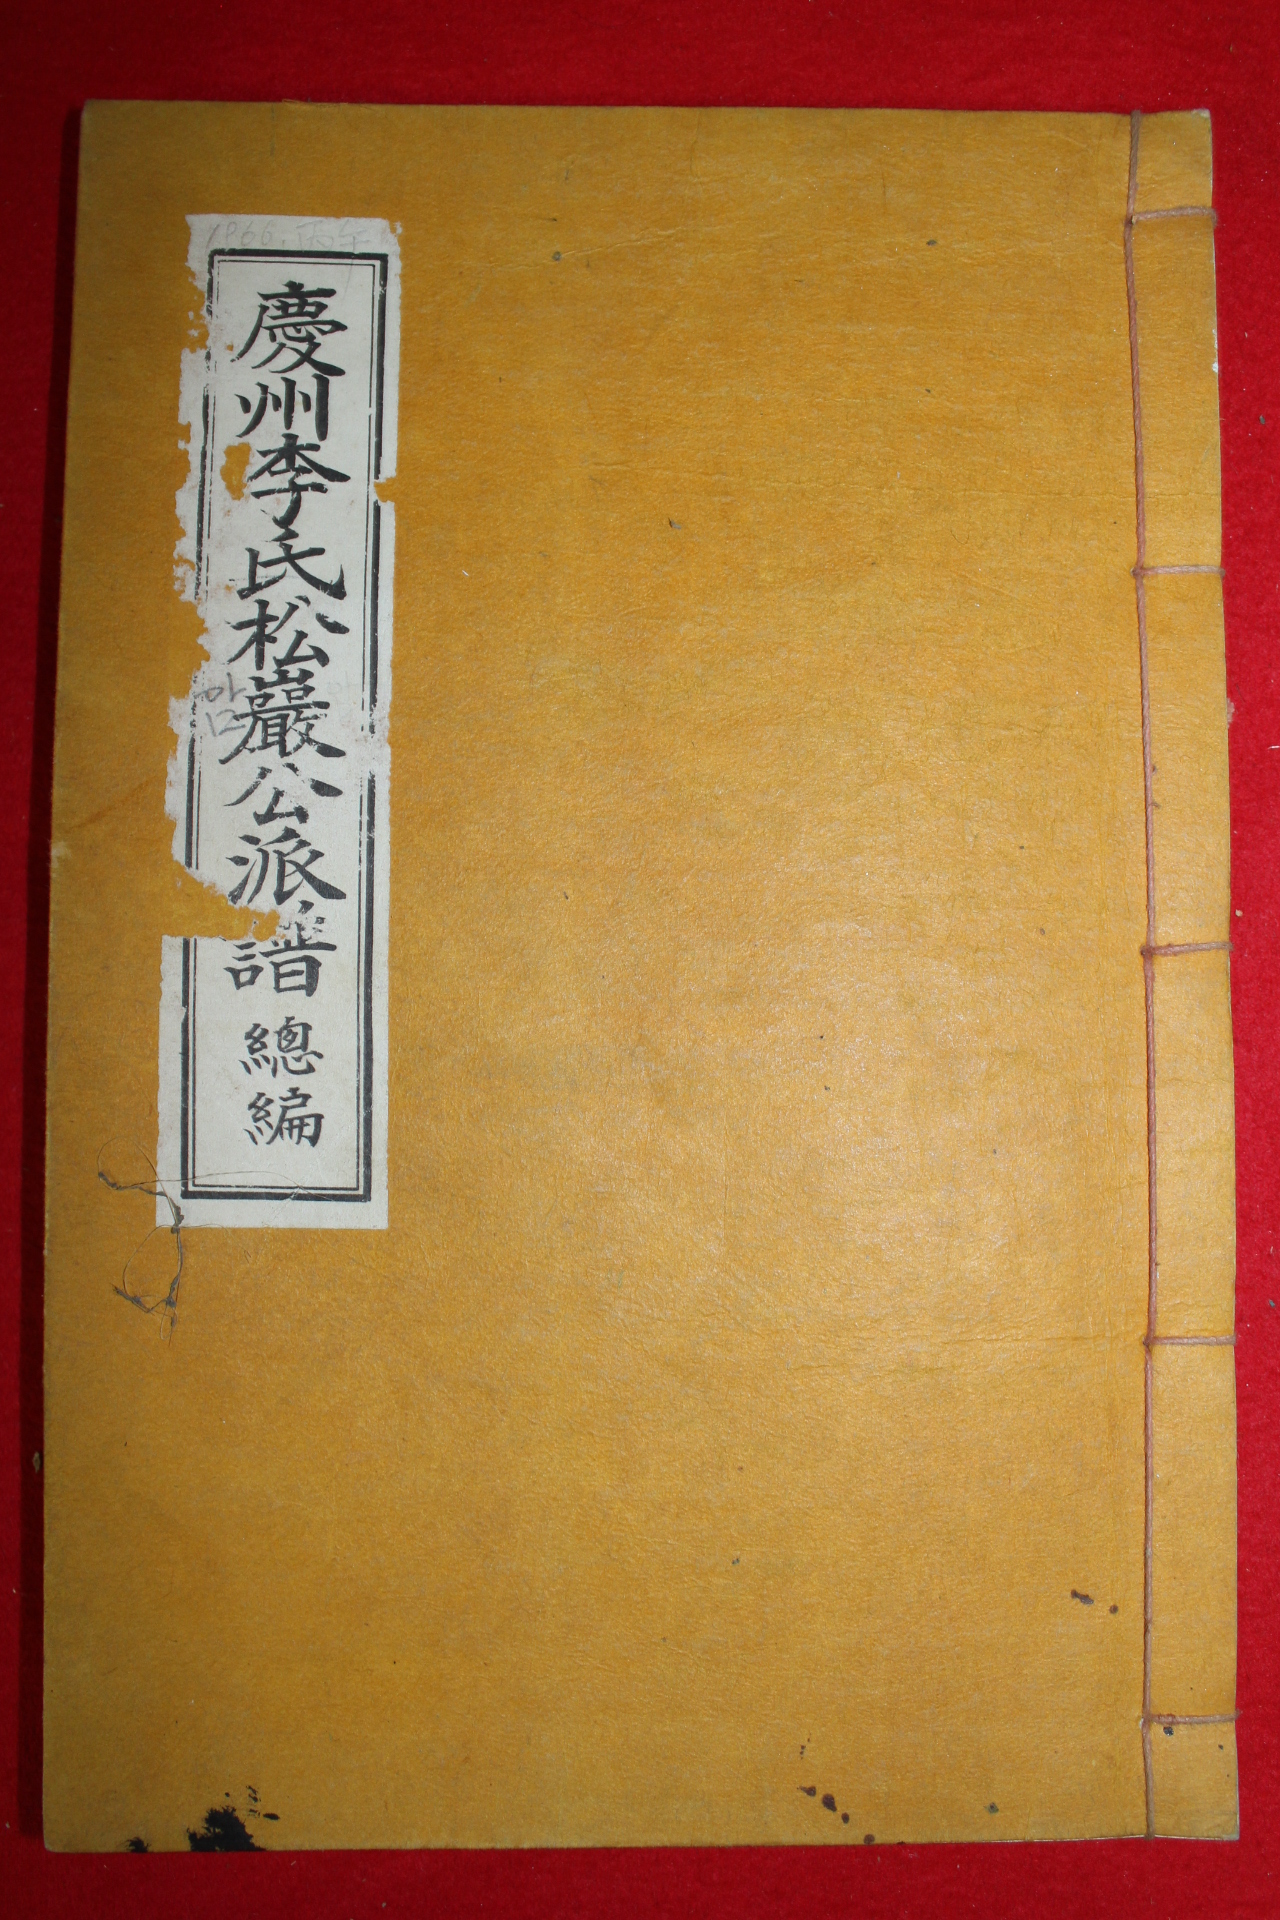 1966. 丙午
慶州李氏松巖公派譜 總編